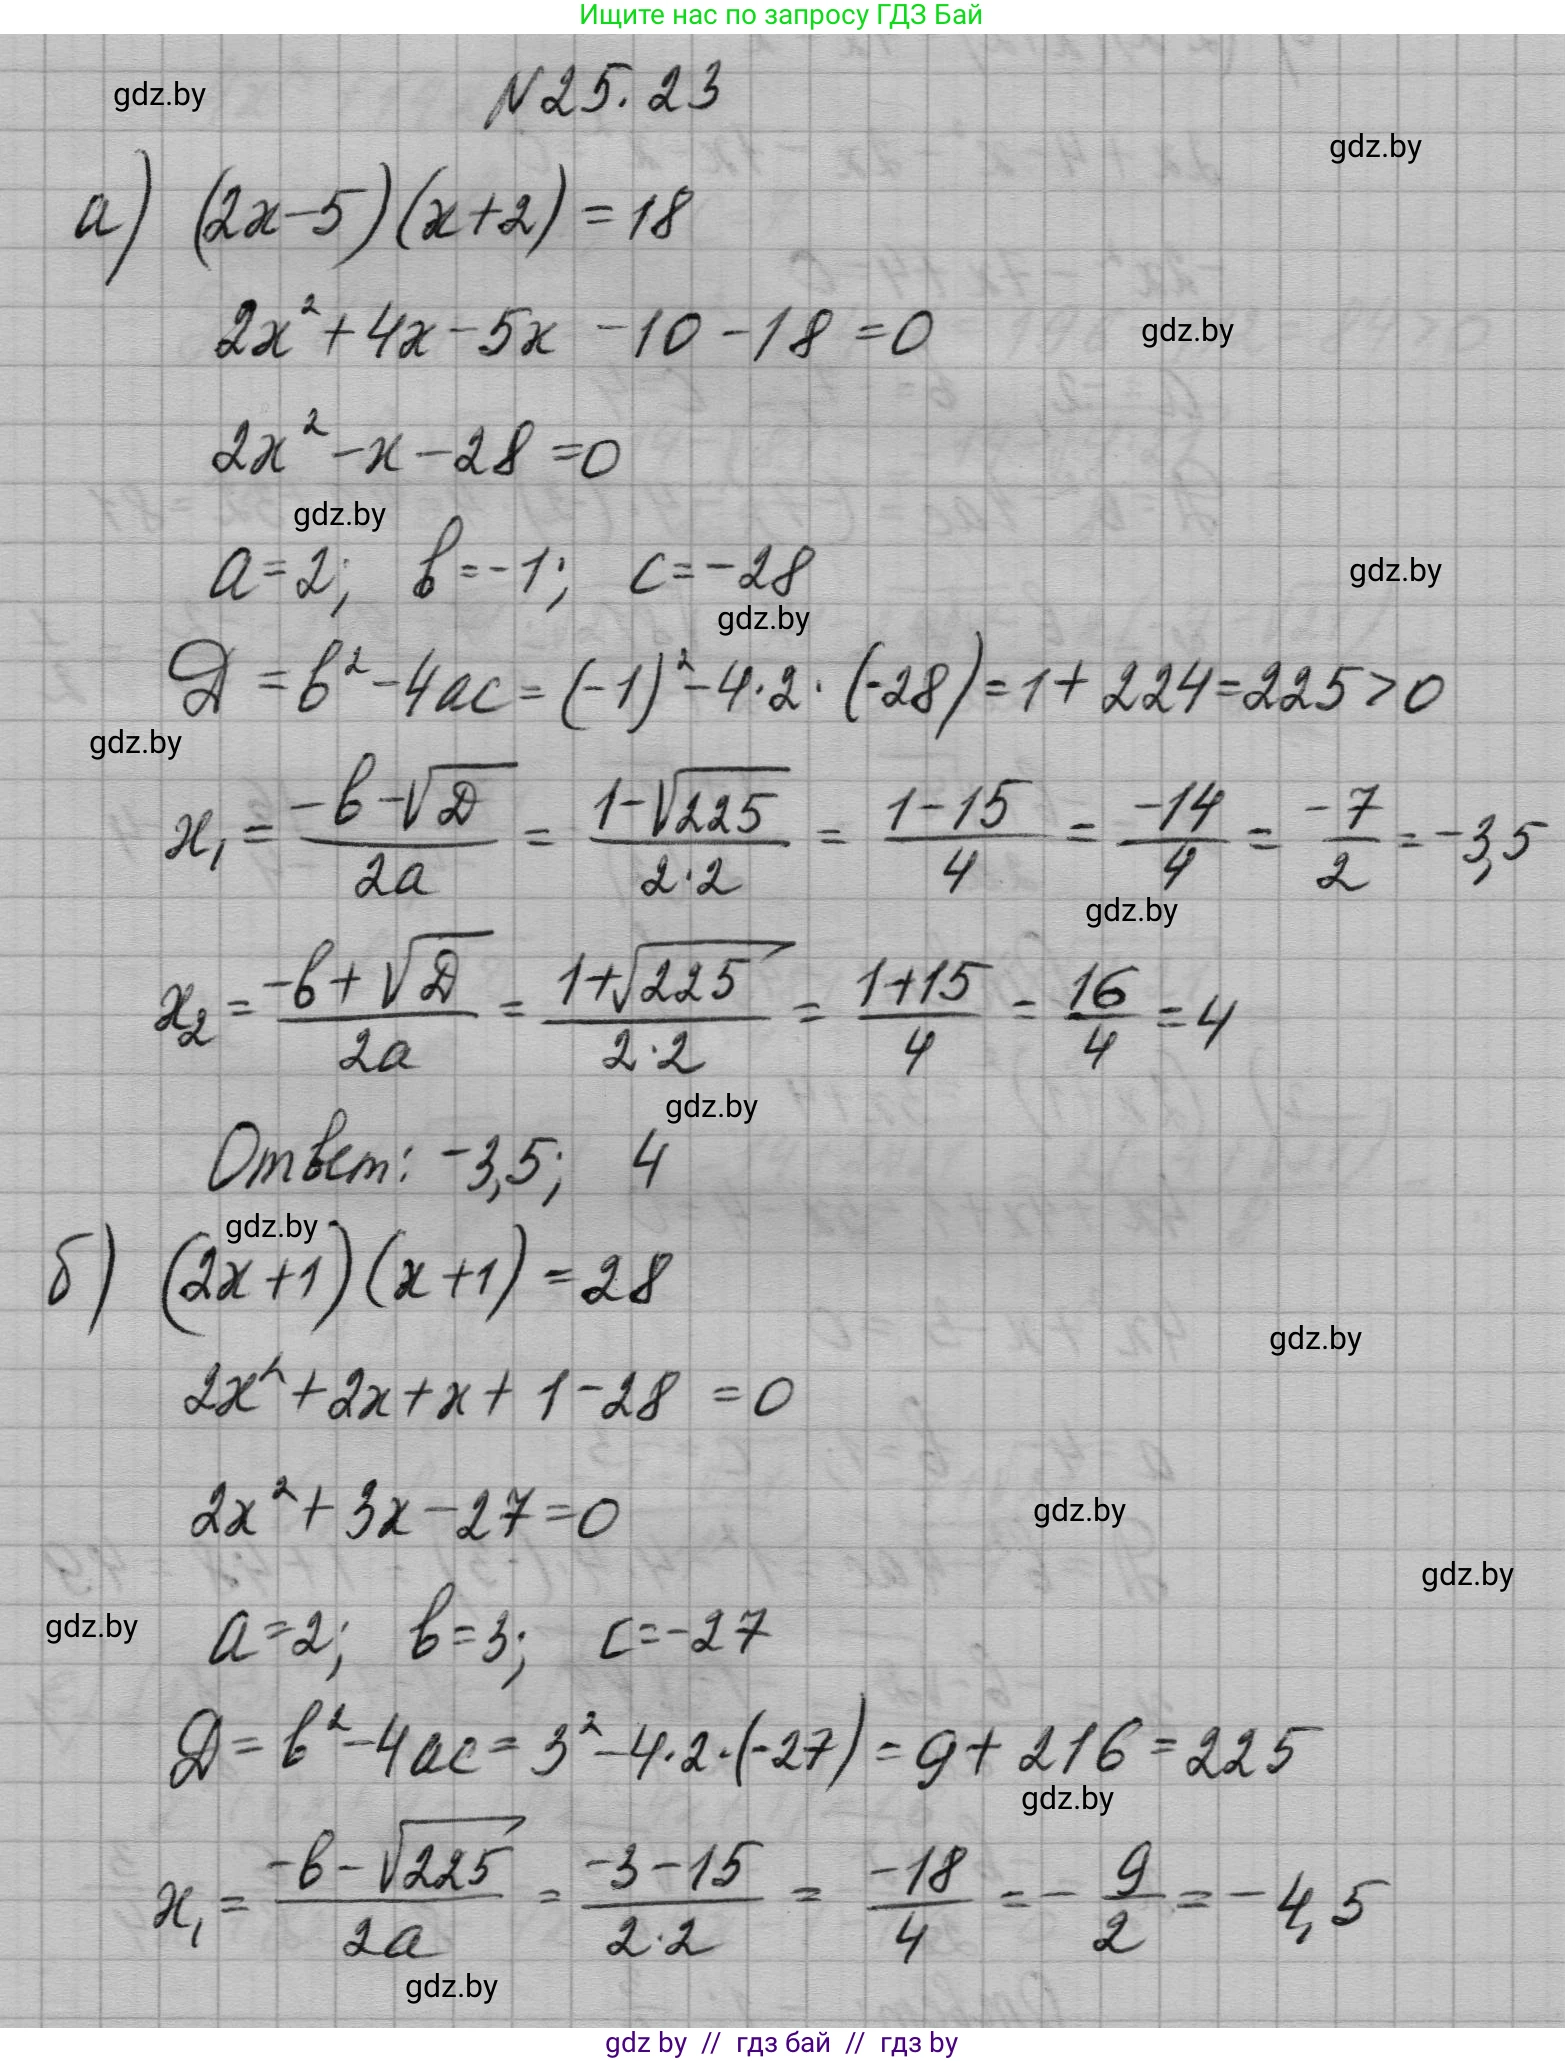 Ищите нас по запросу ГДЗ Бай
N25.23
gdz.by
gdz.by
а) (2x-5)(x+2)=18
2x²+4x-5x-10-18=0
gdz.by
2x²-x-28=0
gdz.by
a=2; b=-1; c=-28
gdz.by
gdz.by
D=b²-4ac=(-1)²-4·2·(-28)=1+224=225>0
gdz.by
x₁=(-b-√D)/(2a)=(1-√225)/(2·2)=(1-15)/4=-14/4=-7/2=-3,5
gdz.by
x₂=(-b+√D)/(2a)=(1+√225)/(2·2)=(1+15)/4=16/4=4
gdz.by
Ответ: -3,5; 4
gdz.by
б) (2x+1)(x+1)=28
gdz.by
2x²+2x+x+1-28=0
2x²+3x-27=0
gdz.by
gdz.by
gdz.by
a=2; b=3; c=-27
D=b²-4ac=3²-4·2·(-27)=9+216=225
gdz.by
x₁=(-b-√225)/(2a)=(-3-15)/(2·2)=-18/4=-9/2=-4,5
gdz.by
gdz by // гдз бай // гдз by